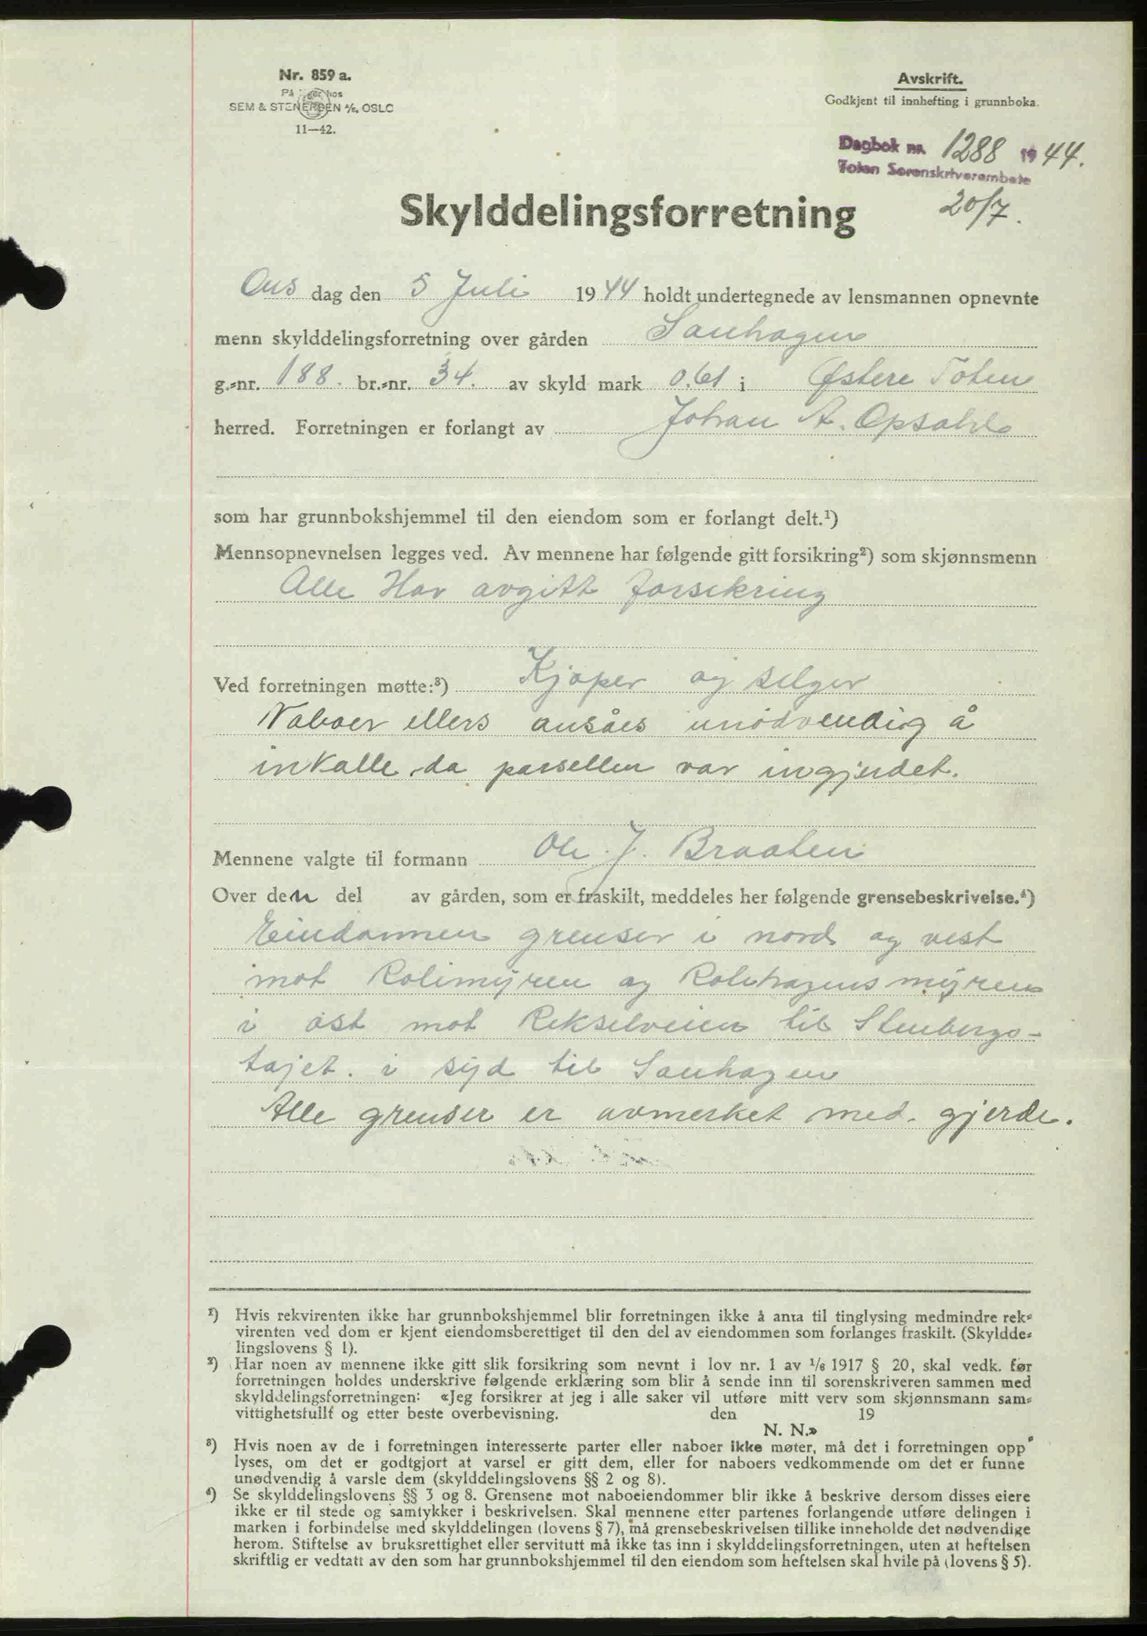 Nr. 859 a.
På lager hos
SEM & STENERSEN A/S, OSLO
11—42.
Avskrift.
Godkjent til innhefting i grunnboka.
Dagbok nr. 1288 1944.
Toten Sorenskriverembete
20/7.
Skylddelingsforretning
Ons dag den 5 Juli 1944 holdt undertegnede av lensmannen opnevnte
menn skylddelingsforretning over gården Sauhagen
g.-nr. 188. br.-nr. 34. av skyld mark 0.61 i Østere Toten
herred. Forretningen er forlangt av Johan A. Opsahl
som har grunnbokshjemmel til den eiendom som er forlangt delt.¹)
Mennsopnevnelsen legges ved. Av mennene har følgende gitt forsikring²) som skjønnsmenn
Alle Har avgitt forsikring
Ved forretningen møtte:³) Kjøper og selger
Naboer ellers ansåes unødvendig å
inkalle da parsellen var ingjerdet.
Mennene valgte til formann Ole J. Braaten
Over den del av gården, som er fraskilt, meddeles her følgende grensebeskrivelse.⁴)
Eiendommen grenser i nord og vest
mot Rolimyren og Rolihagens myren
i øst mot Rekselveien til Stenbergs-
tajet. i syd til Sauhagen
Alle grenser er avmerket med gjerde.
¹) Hvis rekvirenten ikke har grunnbokshjemmel blir forretningen ikke å anta til tinglysing medmindre rek-
virenten ved dom er kjent eiendomsberettiget til den del av eiendommen som forlanges fraskilt. (Skyldde-
lingslovens § 1).
²) Har noen av mennene ikke gitt slik forsikring som nevnt i lov nr. 1 av 1/6 1917 § 20, skal vedk. før
forretningen holdes underskrive følgende erklæring som blir å sende inn til sorenskriveren sammen med
skylddelingsforretningen: «Jeg forsikrer at jeg i alle saker vil utføre mitt verv som skjønnsmann sam-
vittighetsfullt og etter beste overbevisning. den 19
N. N.»
³) Hvis noen av de i forretningen interesserte parter eller naboer ikke møter, må det i forretningen opp
lyses, om det er godtgjort at varsel er gitt dem, eller for naboers vedkommende om det er funne
unødvendig å varsle dem (skylddelingslovens §§ 2 og 8).
⁴) Se skylddelingslovens §§ 3 og 8. Grensene mot naboeiendommer blir ikke å beskrive dersom disses eiere
ikke er til stede og samtykker i beskrivelsen. Skal mennene etter partenes forlangende utføre delingen i
marken i forbindelse med skylddelingen (lovens § 7), må grensebeskrivelsen tillike inneholde det nødvendige
herom. Stiftelse av bruksrettighet eller servitutt må ikke tas inn i skylddelingsforretningen, uten at heftelsen
skriftlig er vedtatt av den som har grunnbokshjemmel til den eiendom som heftelsen skal hvile på (lovens § 5).